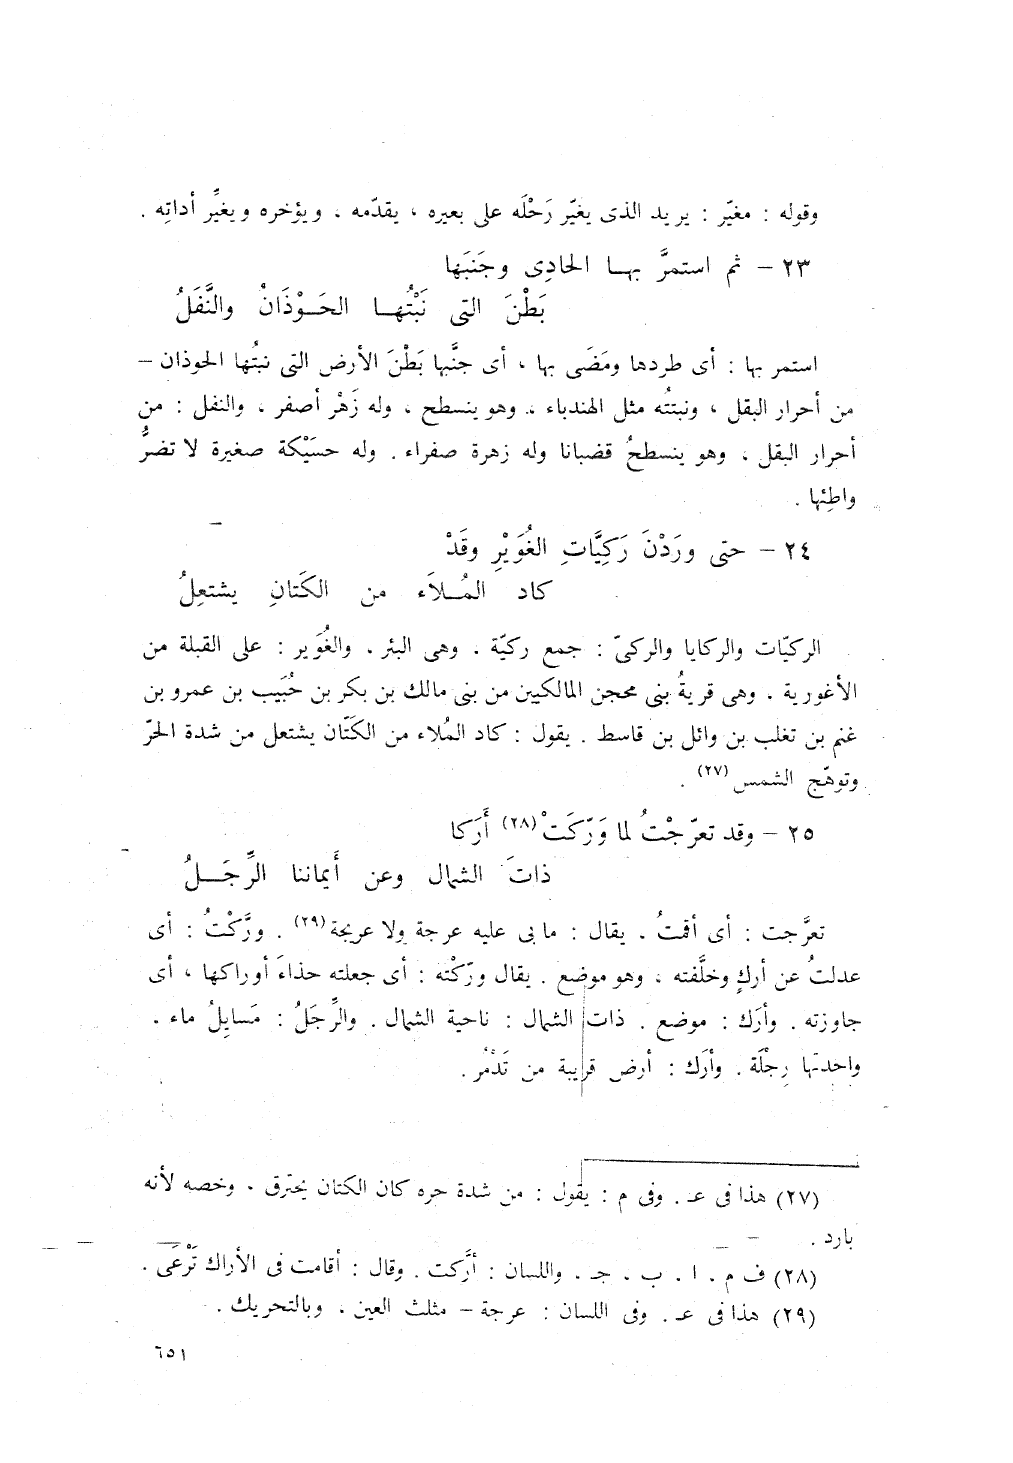 وقوله : مغيّر : يريد الذى يغيّر رَحْلَه على بعيره ، يقدّمه ، ويؤخره ويغيِّر أداتِه .
٢٣ – ثم استمرَّ بهـا الحادِى وجَنَبَها
بَطْنَ التى نَبْتُهـا الحَـوْذَانُ والنَّفَلُ
استمر بها : أى طردها ومَضَى بها ، أى جنَّبها بَطْنَ الأرض التى نبتُها الحوذان –
من أحرار البقل ، ونبتتُه مثل الهندباء ، وهو ينسطح ، وله زَهْر أصفر ، والنفل : من
أحرار البقل ، وهو ينسطحُ قضبانا وله زهرة صفراء . وله حسَيْكة صغيرة لا تضرُّ
واطِئها .
٢٤ – حتى ورَدْنَ رَكِيَّاتِ الغُوَيْرِ وقَدْ
كاد المُـلاَء من الكَتانِ يشتعِلُ
الركيّات والركايا والركىّ : جمع ركيّة . وهى البئر . والغُوَير : على القبلة من
الأغورية . وهى قريةُ بنى محجن المالكيين من بنى مالك بن بكر بن حُبَيب بن عمرو بن
غنم بن تغلب بن وائل بن قاسط . يقول : كاد المُلاء من الكَتّان يشتعل من شدة الحرّ
وتوهّج الشمس (٢٧) .
٢٥ – وقد تعرّجْتُ لما وَرّكَتْ (٢٨) أَرَكا
ذاتَ الشمال وعن أَيماننا الرِّجَـلُ
تعرَّجت : أى أقمتُ . يقال : ما بى عليه عرجة ولا عريجة (٢٩) . ورَّكْتُ : أى
عدلتُ عن أركٍ وخلَّفته ، وهو موضع . يقال ورّكْته : أى جعلته حذاءَ أوراكها ، أى
جاوزته . وأرَك : موضع . ذات الشمال : ناحية الشمال . والرِّجَلُ : مَسايِلُ ماء .
واحدتها رِجْلَة . وأرَك : أرض قريبة من تَدْمُر .
(٢٧) هذا فى عـ . وفى م : يقول : من شدة حره كان الكتان يحترق . وخصه لأنه
بارد .
(٢٨) ف م . ا . ب . جـ . واللسان : أرَّكت . وقال : أقامت فى الأراك تَرْعَى .
(٢٩) هذا فى عـ . وفى اللسان : عرجة – مثلث العين . وبالتحريك .
٦٥١